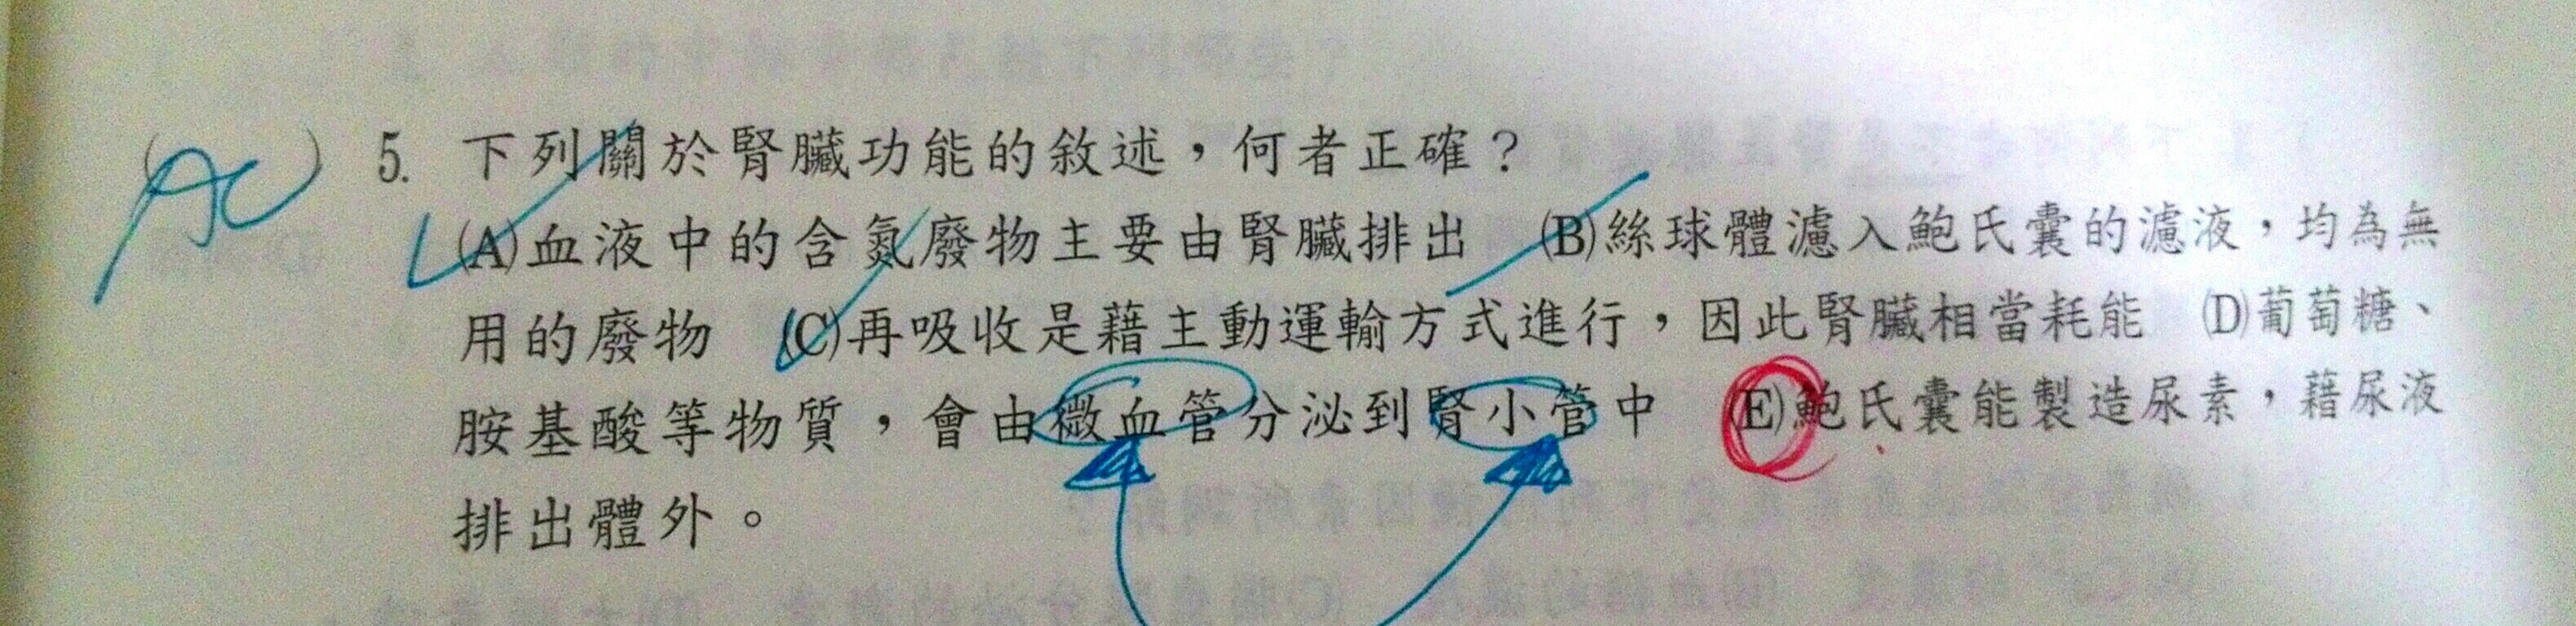 (AC) 5. 下列關於腎臟功能的敘述，何者正確？
(A)血液中的含氮廢物主要由腎臟排出 (B)絲球體濾入鮑氏囊的濾液，均為無
用的廢物 (C)再吸收是藉主動運輸方式進行，因此腎臟相當耗能 (D)葡萄糖、
胺基酸等物質，會由微血管分泌到腎小管中 (E)鮑氏囊能製造尿素，藉尿液
排出體外。